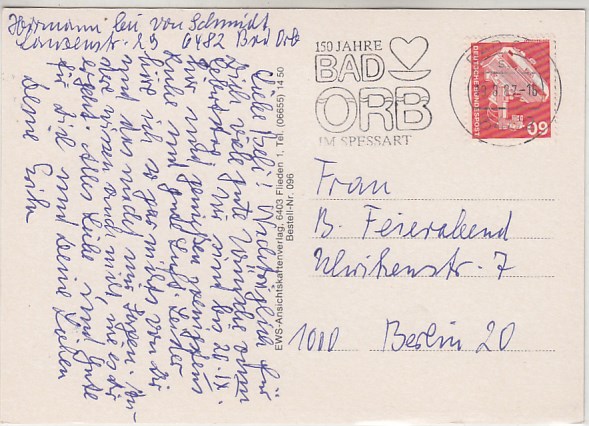 Hermann bei von Schmidt
Lauzenstr. 29 6482 Bad Orb
Liebe Beti! Nachträglich zum
Geburtstag viele gute Wünsche
wir sind bis 28.IX.
hier und genießen
Ruhe und gute Luft. Leider
höre ich so gar nichts von Dir
und das macht mir Sorgen.
aber wissen auch nicht, wie es Dir
ergeht. Alles Liebe und Gute
für Dich und Deine Lieben
Deine
150 JAHRE
BAD
ORB
IM SPESSART
DEUTSCHE BUNDESPOST
60
EWS-Ansichtskartenverlag, 6403 Flieden 1, Tel. (06655) 14 50
Bestell-Nr. 096
Frau
B. Feierabend
Ulrikenstr. 7
1000 Berlin 20